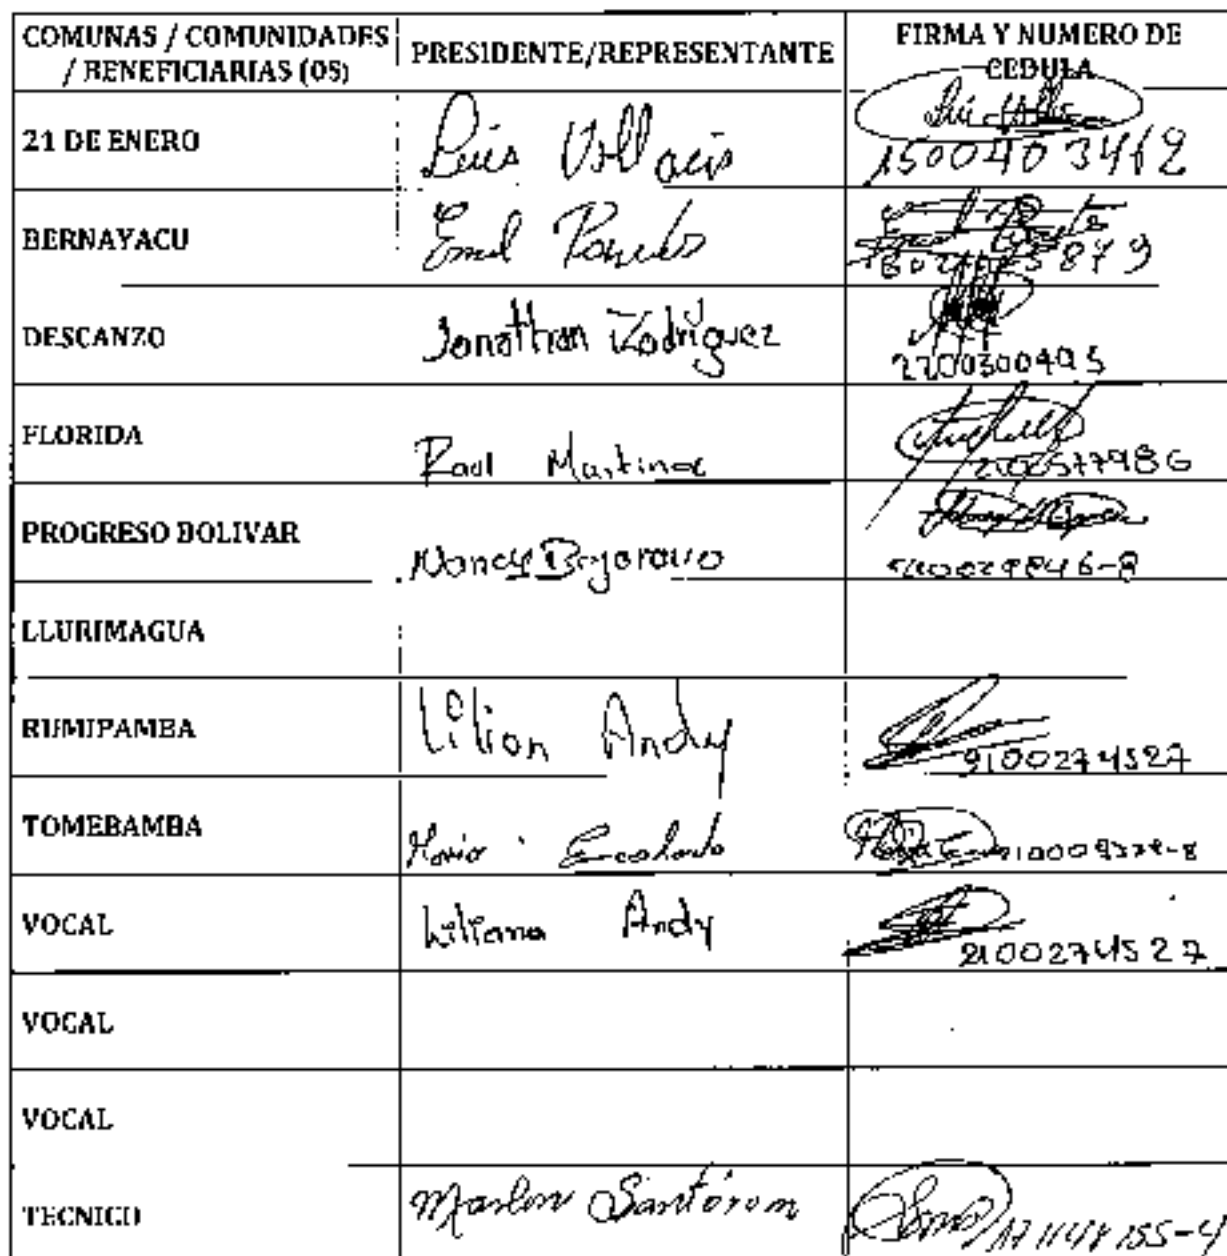 COMUNAS / COMUNIDADES / BENEFICIARIAS (OS) PRESIDENTE/REPRESENTANTE FIRMA Y NUMERO DE CEDULA
21 DE ENERO Luis Villacis 1500403462
BERNAYACU Emil Paredes
DESCANZO Jonathan Rodriguez 2200300495
FLORIDA Raul Martinez 2100577986
PROGRESO BOLIVAR Nancy Bejarano
LLURIMAGUA
RUMIPAMBA Lilian Andy 2100274527
TOMEBAMBA Maria
VOCAL Liliana Andy 2100274527
VOCAL
VOCAL
TECNICO Marlon Santórum